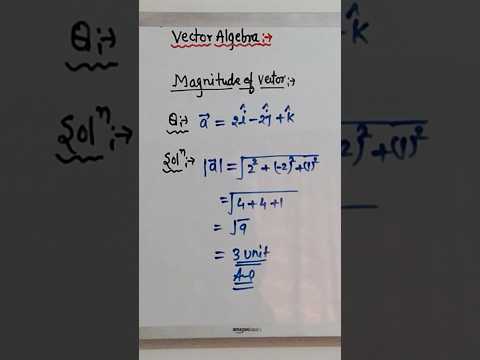 Vector Algebra:→
Q:→
Magnitude of Vector:→
Q:→ a⃗ = 2î - 2ĵ + k̂
Solⁿ:→ |a⃗| = √2² + (-2)² + (1)²
= √4+4+1
= √9
= 3 unit
Ans